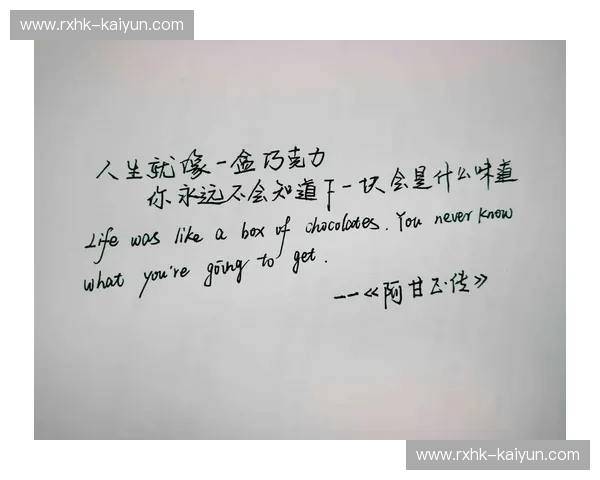 www.rxhk-kaiyun.com
人生就像一盒巧克力
你永远不会知道下一块会是什么味道
Life was like a box of chocolates. You never know
what you're going to get.
——《阿甘正传》
www.rxhk-kaiyun.com